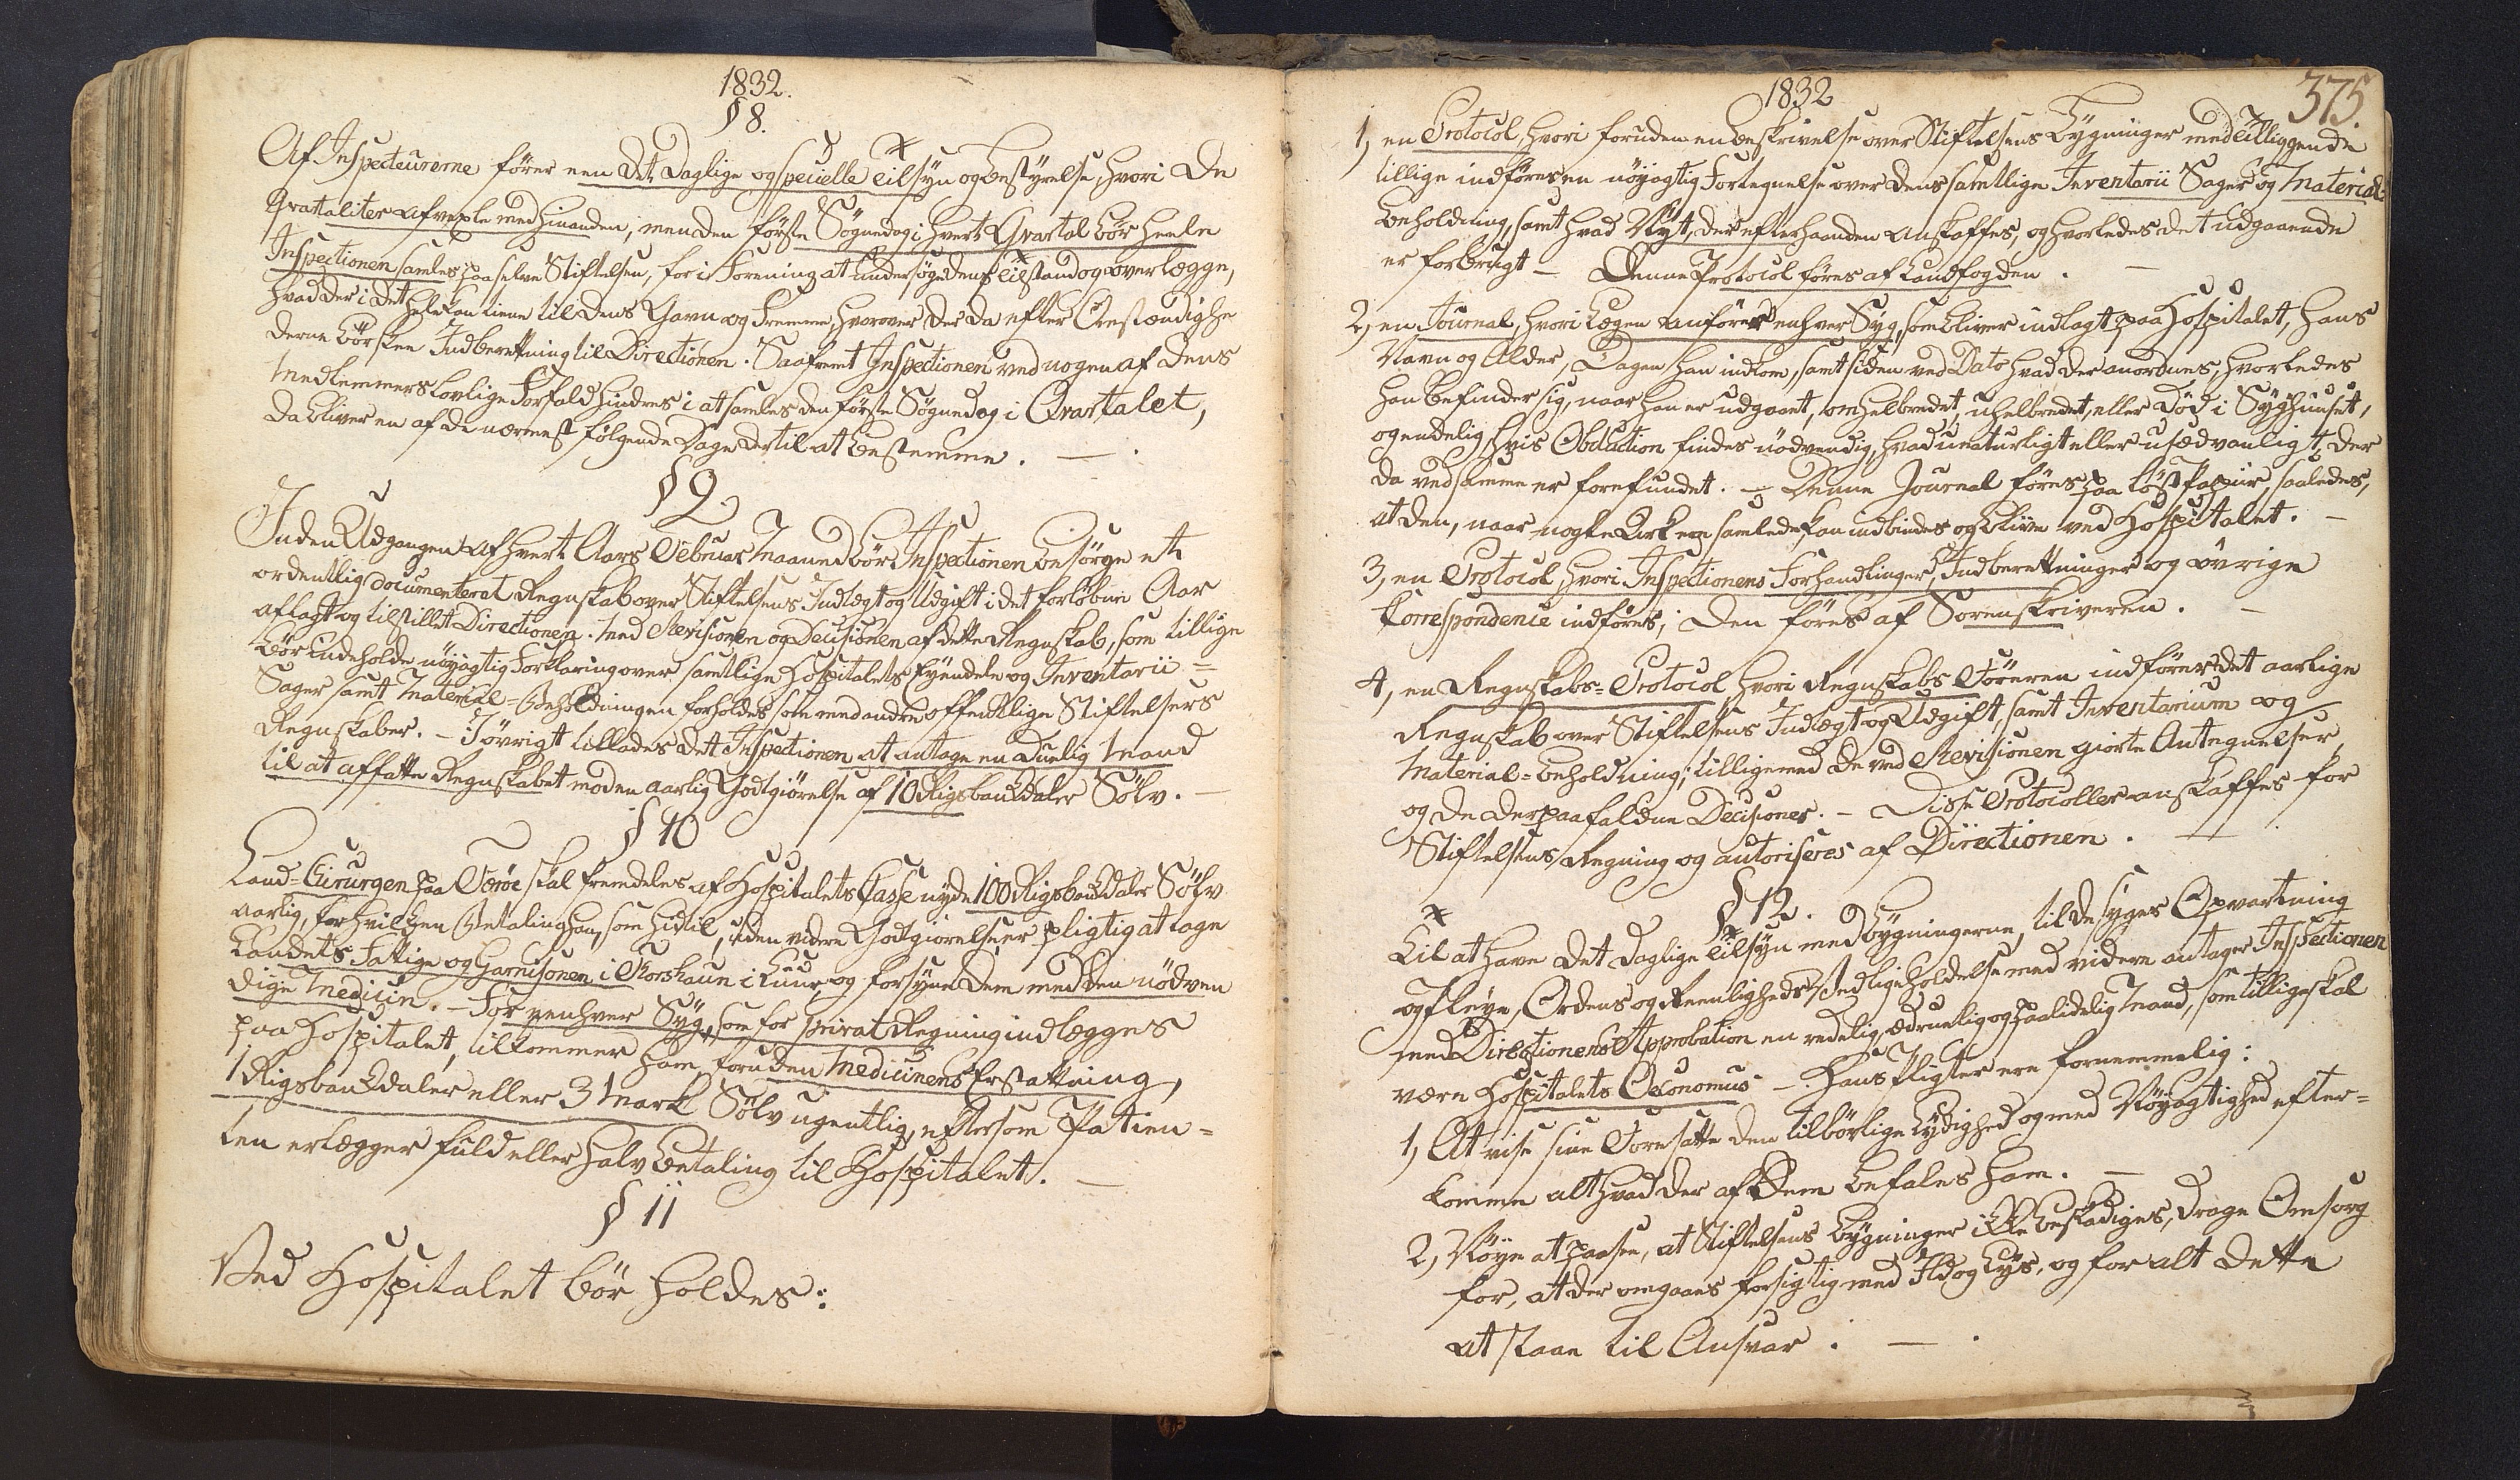 1832.
§ 8.
Af Inspecteurerne fører een det daglige og specielle Tilsyn og Bestyrelse, hvori de
Qvartaliter afvexle med hinanden, men den første Søgnedag i hvert Qvartal bør heele
Inspectionen samles paa selve Stiftelsen, for i Forening at undersøge dens Tilstand og overlægge,
hvad der i det hele kan tiene til dens Gavn og Fremme, hvorover der da efter Omstændighe
derne bør skee Indberetning til Directionen. Saafremt Inspectionen ved nogen af dens
Medlemmers lovlige Forfald hindres i at samles den første Søgnedag i Qvartalet,
da bliver en af de nærmest følgende Dage dertil at bestemme. —
§ 9
Inden Udgangen af hvert Aars Februar Maaned bør Inspectionen besørge et
ordentlig documenteret Regnskab over Stiftelsens Indtægt og Udgift i det forløbne Aar
aflagt og tilstillet Directionen. Med Revisionen og Decisionen af dette Regnskab, som tillige
bør indeholde nøyagtig Forklaring over samtlige Hospitalets Eyendele og Inventarii=
Sager samt Material=Beholdningen forholdes som med andre offentlige Stiftelsers
Regnskaber. — Iøvrigt tillades det Inspectionen at antage en duelig Mand
til at affatte Regnskabet mod en aarlig Godtgiørelse af 10 Rigsbankdaler Sølv. —
§ 10
Land=Chirurgen paa Færøe skal fremdeles af Hospitalets Casse nyde 100 Rigsbankdaler Sølv
aarlig, for hvilken Betaling han, som hidtil, uden videre Godtgiørelse er pligtig at tage
Landets Fattige og Garnisonen i Thorshavn i Cuur og forsyne dem med den nødven
dige Medicin. — For enhver Syg, som for privat Regning indlægges
paa Hospitalet, tilkommer ham foruden Medicinens Erstatning,
1 Rigsbankdaler eller 3 Mark Sølv ugentlig, eftersom Patien=
ten erlægger fuld eller halv Betaling til Hospitalet. —
§ 11
Ved Hospitalet bør holdes:
1832
375.
1, en Protocol, hvori foruden en Beskrivelse over Stiftelsens Bygninger med Tilliggende
tillige indføres en nøyagtig Fortegnelse over dens samtlige Inventarii Sager og Material=
beholdning, samt hvad Nyt, der efterhaanden anskaffes, og hvorledes det udgaaende
er forbrugt — Denne Protocol føres af Landfogden. —
2, en Journal, hvori Lægen anfører enhver Syg, som bliver indlagt paa Hospitalet, hans
Navn og Alder, Dagen han indkom, samt siden ved Dato hvad der anordnes, hvorledes
han befinder sig, naar han er udgaaet, om helbredet, uhelbredet, eller død i Syghuuset,
og endelig hvis Obduction findes nødvendig, hvad unaturligt eller usædvanligt, der
da ved samme er forefundet. — Denne Journal føres paa løst Papiir, saaledes,
at den, naar nogle Ark ere samlede kan indbindes og blive ved Hospitalet. —
3, en Protocol, hvori Inspectionens Forhandlinger, Indberetninger og øvrige
Correspondence indføres; Den føres af Sorenskriveren. —
4, en Regnskabs=Protocol hvori Regnskabs Føreren indfører det aarlige
Regnskab over Stiftelsens Indtægt og Udgift, samt Inventarium og
Material=Beholdning; tilligemed de ved Revisionen giorte Antegnelser,
og de derpaa faldne Decisioner. — Disse Protocoller anskaffes for
Stiftelsens Regning og autoriseres af Directionen. —
§ 12.
Til at have det daglige Tilsyn med Bygningerne, til de syges Opvartning
og Pleye, Ordens og Reenligheds Vedligeholdelse med videre antager Inspectionen
med Directionens Approbation en redelig, ædruelig og paalidelig Mand, som tillige skal
være Hospitalets Oeconomus —. Hans Pligter ere fornemmelig:
1, At vise sine Foresatte den tilbørlige Lydighed og med Nøyagtighed efter=
komme alt hvad der af Dem befales ham. —
2, Nøye at paasee, at Stiftelsens Bygninger ikke beskadiges, drage Omsorg
for, at der omgaaes forsigtig med Ild og Lys, og for alt dette
at staae til Ansvar. —